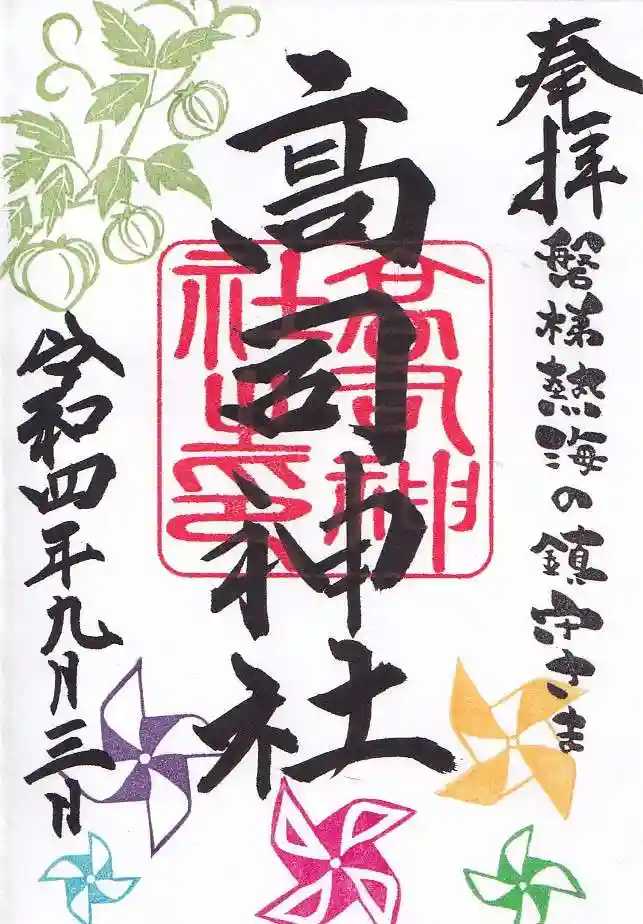 奉拝
磐梯熱海の鎮守さま
高司神社
高司神
社之印
令和四年九月三日